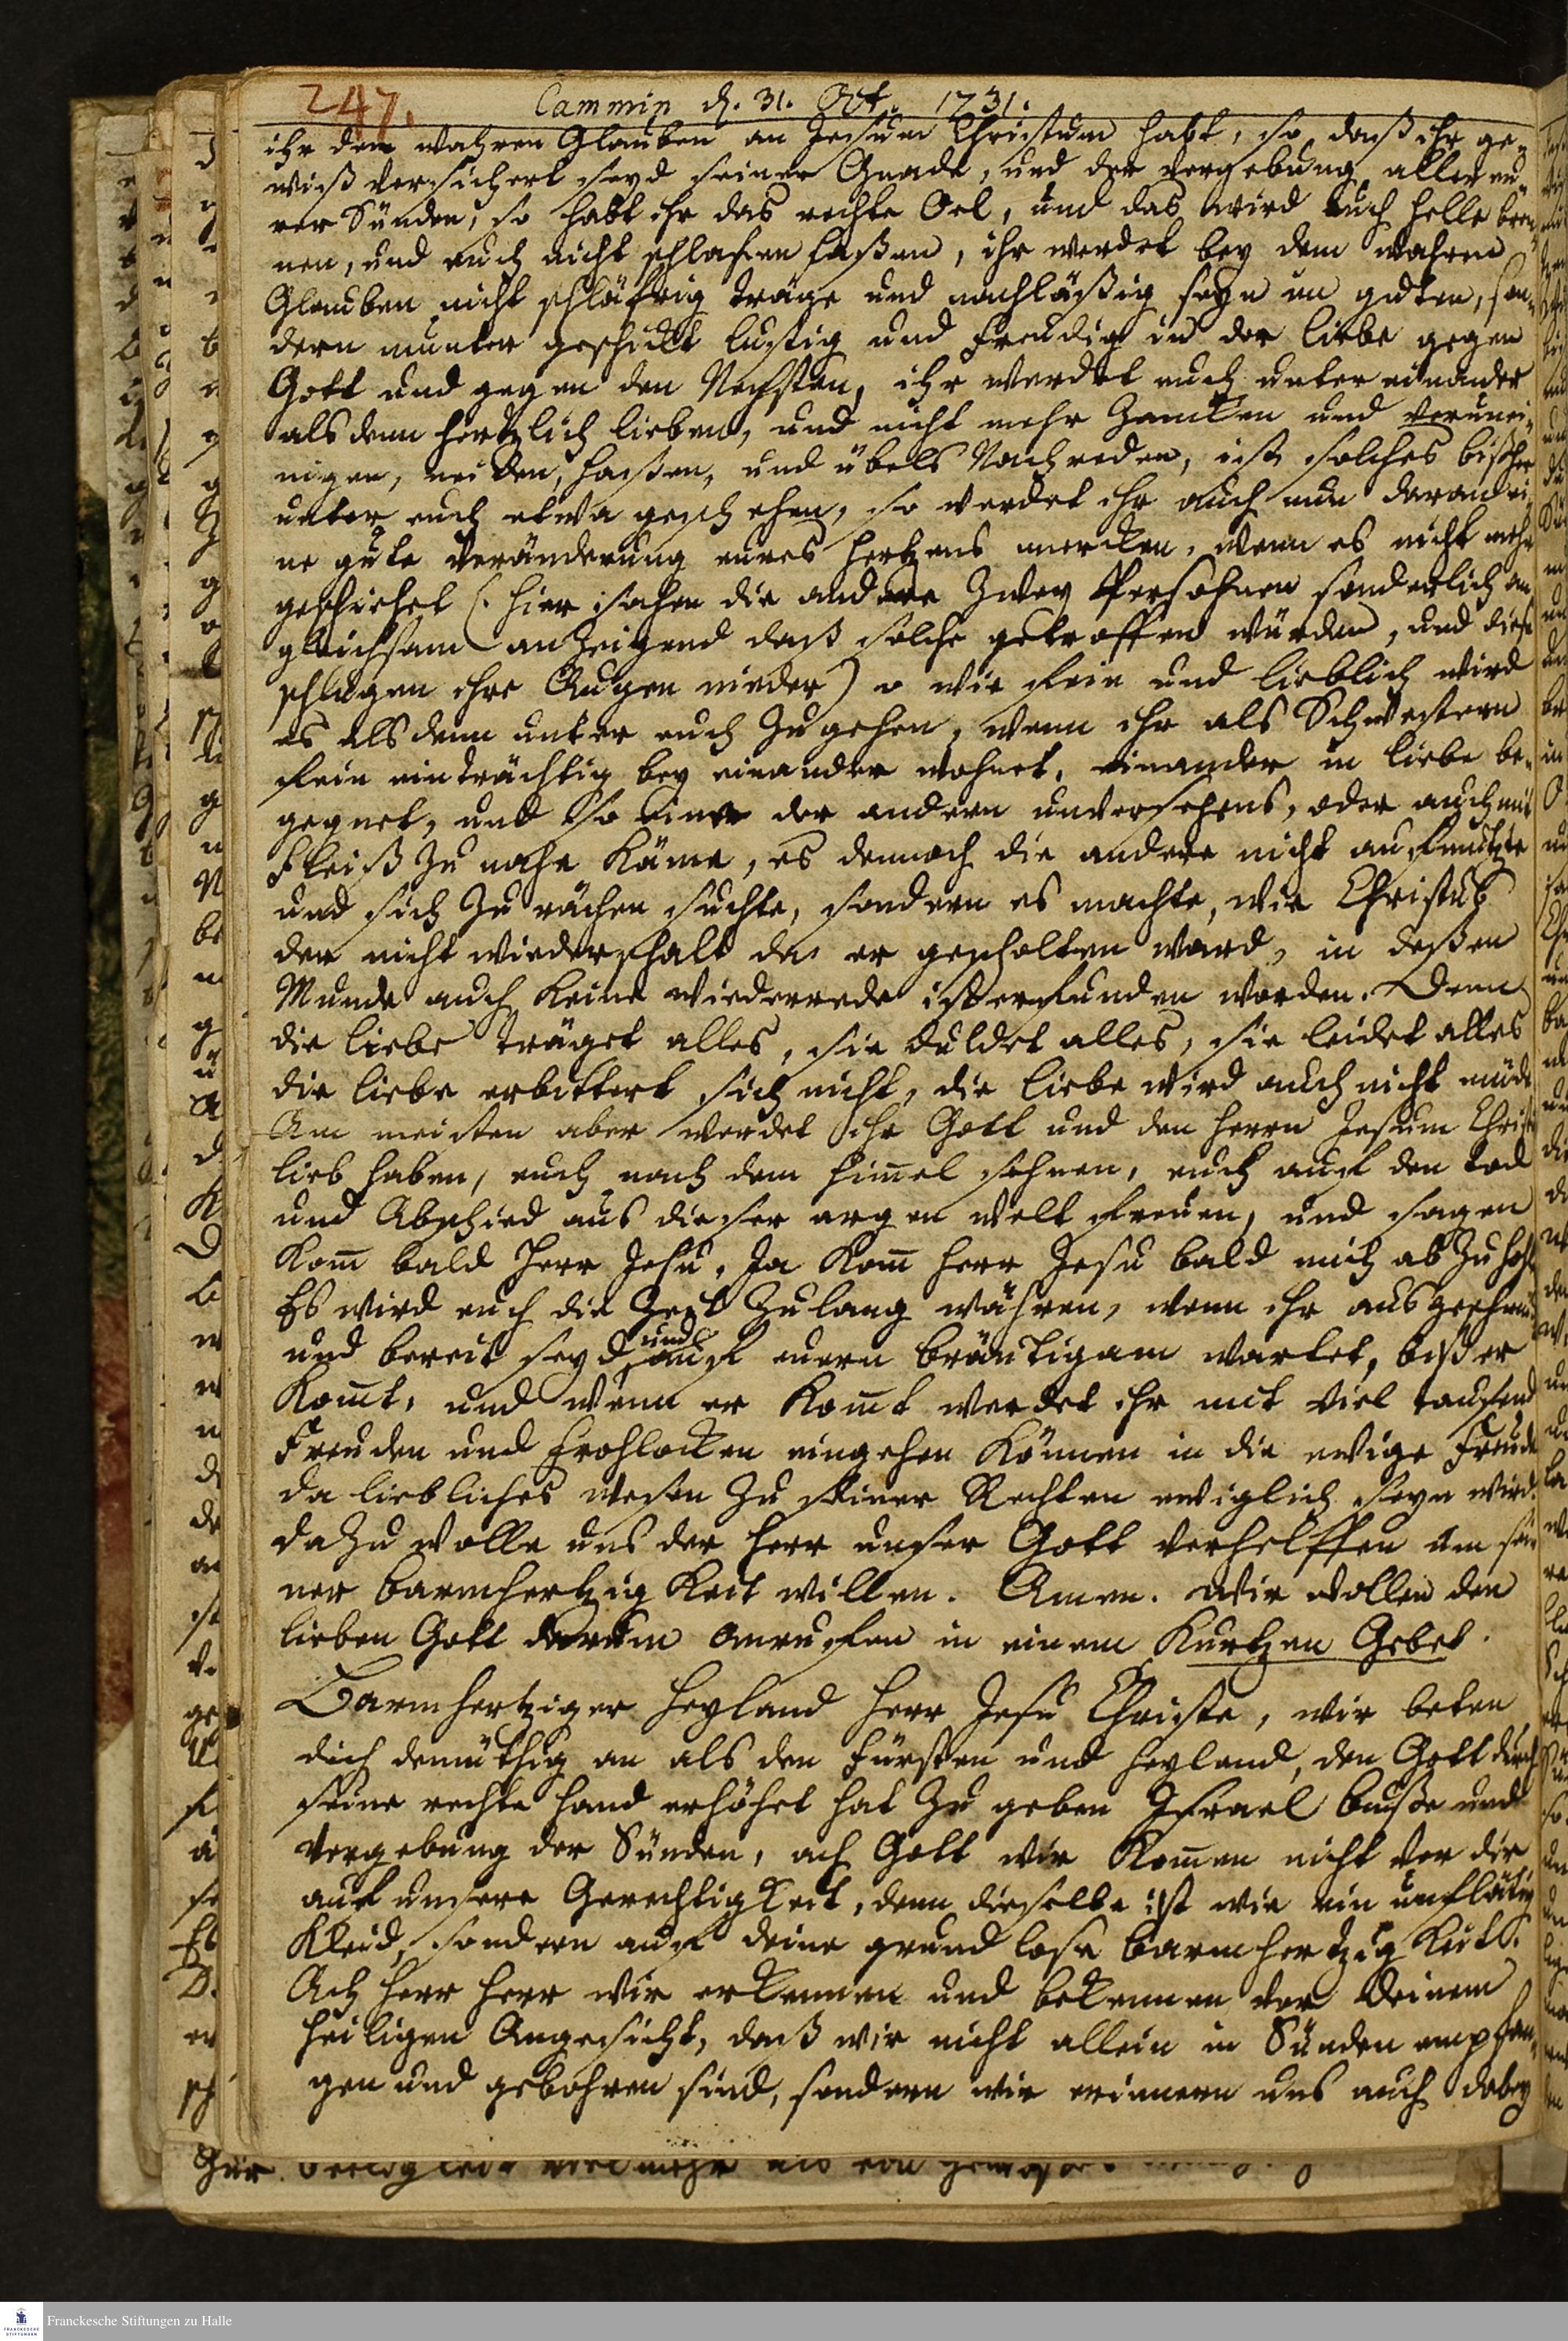 247. Cammin d. 31. Oct. 1731.
ihr den wahren Glauben an Jesum Christum habt, so daß ihr ge-
wiß versichert seyd seiner Gnade, und der Vergebung aller eu-
rer Sünden, so habt ihr das rechte Oel, und das wird auch helle bren-
nen, und euch nicht schlafen laßen, ihr werdet bey dem wahren
Glauben nicht schläfrig träge und nachläßig seyn im guten, son-
dern munter geschickt lustig und freudig in der liebe gegen
Gott und gegen den Nechsten, ihr werdet euch unter einander
alsdenn hertzlich lieben, und nicht mehr Zancken und verunei-
nigen, neiden, haßen, und übels Nachreden, ist solches bißher
unter euch etwa geschehen, so werdet ihr auch nun daran ei-
ne gute Veränderung eures hertzens mercken, wenn es nicht mehr
geschiehet (hier sahen die andere Zwey Persohnen sonderlich an
gleichsam anzeigend daß solche getroffen würden, und diese
schlugen ihre Augen nieder) o wie fein und lieblich wird
es alsdenn unter euch Zugehen, wenn ihr als Schwestern
fein einträchtig bey einander wohnet, einander in liebe be-
gegnet, und so eine der andern unversehens, oder auch mit
Fleiß Zu nahe Käme, es dennoch die andere nicht aufmutzte
und sich Zu rächen suchte, sondern es machte, wie Christus
der nicht wiederschalt da er gescholten ward, in deßen
Munde auch Keine wiederrede ist erfunden worden. Denn
die liebe träget alles, sie duldet alles, sie leidet alles
die liebe erbittert sich nicht, die liebe wird auch nicht müde
Am meisten aber werdet ihr Gott und den Herrn Jesum Christ
lieb haben, euch nach dem himel sehnen, euch auf den tod
und Abschied aus dieser argen welt freuen, und sagen
Kom bald Herr Jesu, Ja Kom Herr Jesu bald mich abZuhohl
Es wird euch die Zeit Zulang währen, wenn ihr ausgeschmü
und bereit seyd, und auf euern bräutigam wartet, biß er
Komt, und wenn er Komt werdet ihr mit viel tausend
Freuden und Frohlocken eingehen Können in die ewige Freude
da liebliches wesen Zu seiner Rechten ewiglich seyn wird.
daZu wolle uns der Herr unser Gott verhelffen um sei-
ner barmhertzigKeit willen. Amen. Wir wollen den
lieben Gott darum anrufen in einem Kurtzen Gebet.
Barmhertziger Heyland Herr Jesu Christe, wir beten
dich demüthig an als den Fürsten und Heyland, den Gott durch
seine rechte hand erhöhet hat Zu geben Israel buße und
Vergebung der Sünden, ach Gott wir Komen nicht vor dir
auf unsere GerechtigKeit, denn dieselbe ist wie ein unflätig
Kleid, sondern auf deine grundlose barmhertzigKeit.
Ach Herr Herr wir erkennen und bekennen vor deinem
heiligen Angesicht, daß wir nicht allein in Sünden empfan-
gen und gebohren sind, sondern wir erinnern uns auch dabey
Franckesche Stiftungen zu Halle